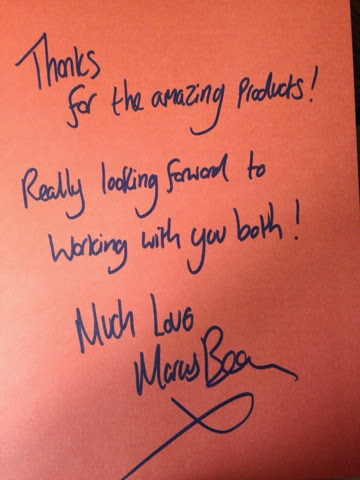 Thanks
for the amazing Products!
Really looking forward to
Working with you both!
Much Love
Marcus Bean